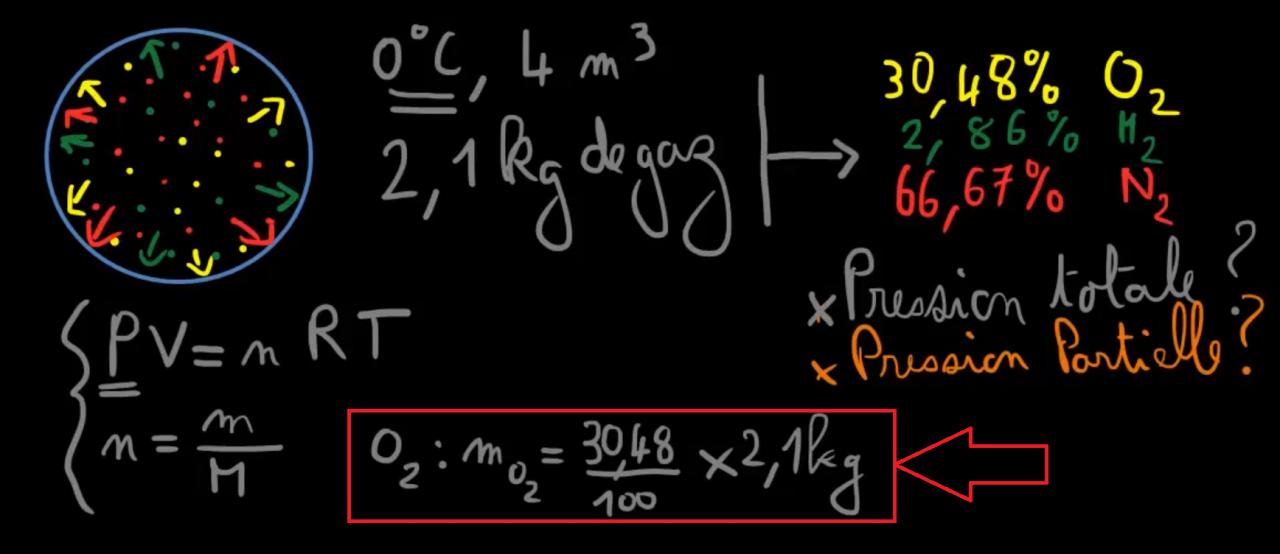 0°C, 4 m³
2,1 kg de gaz
30,48% O₂
2,86% H₂
66,67% N₂
x Pression totale ?
x Pression Partielle ?
PV = n RT
n = m/M
O₂ : m_O₂ = 30,48/100 x 2,1 kg